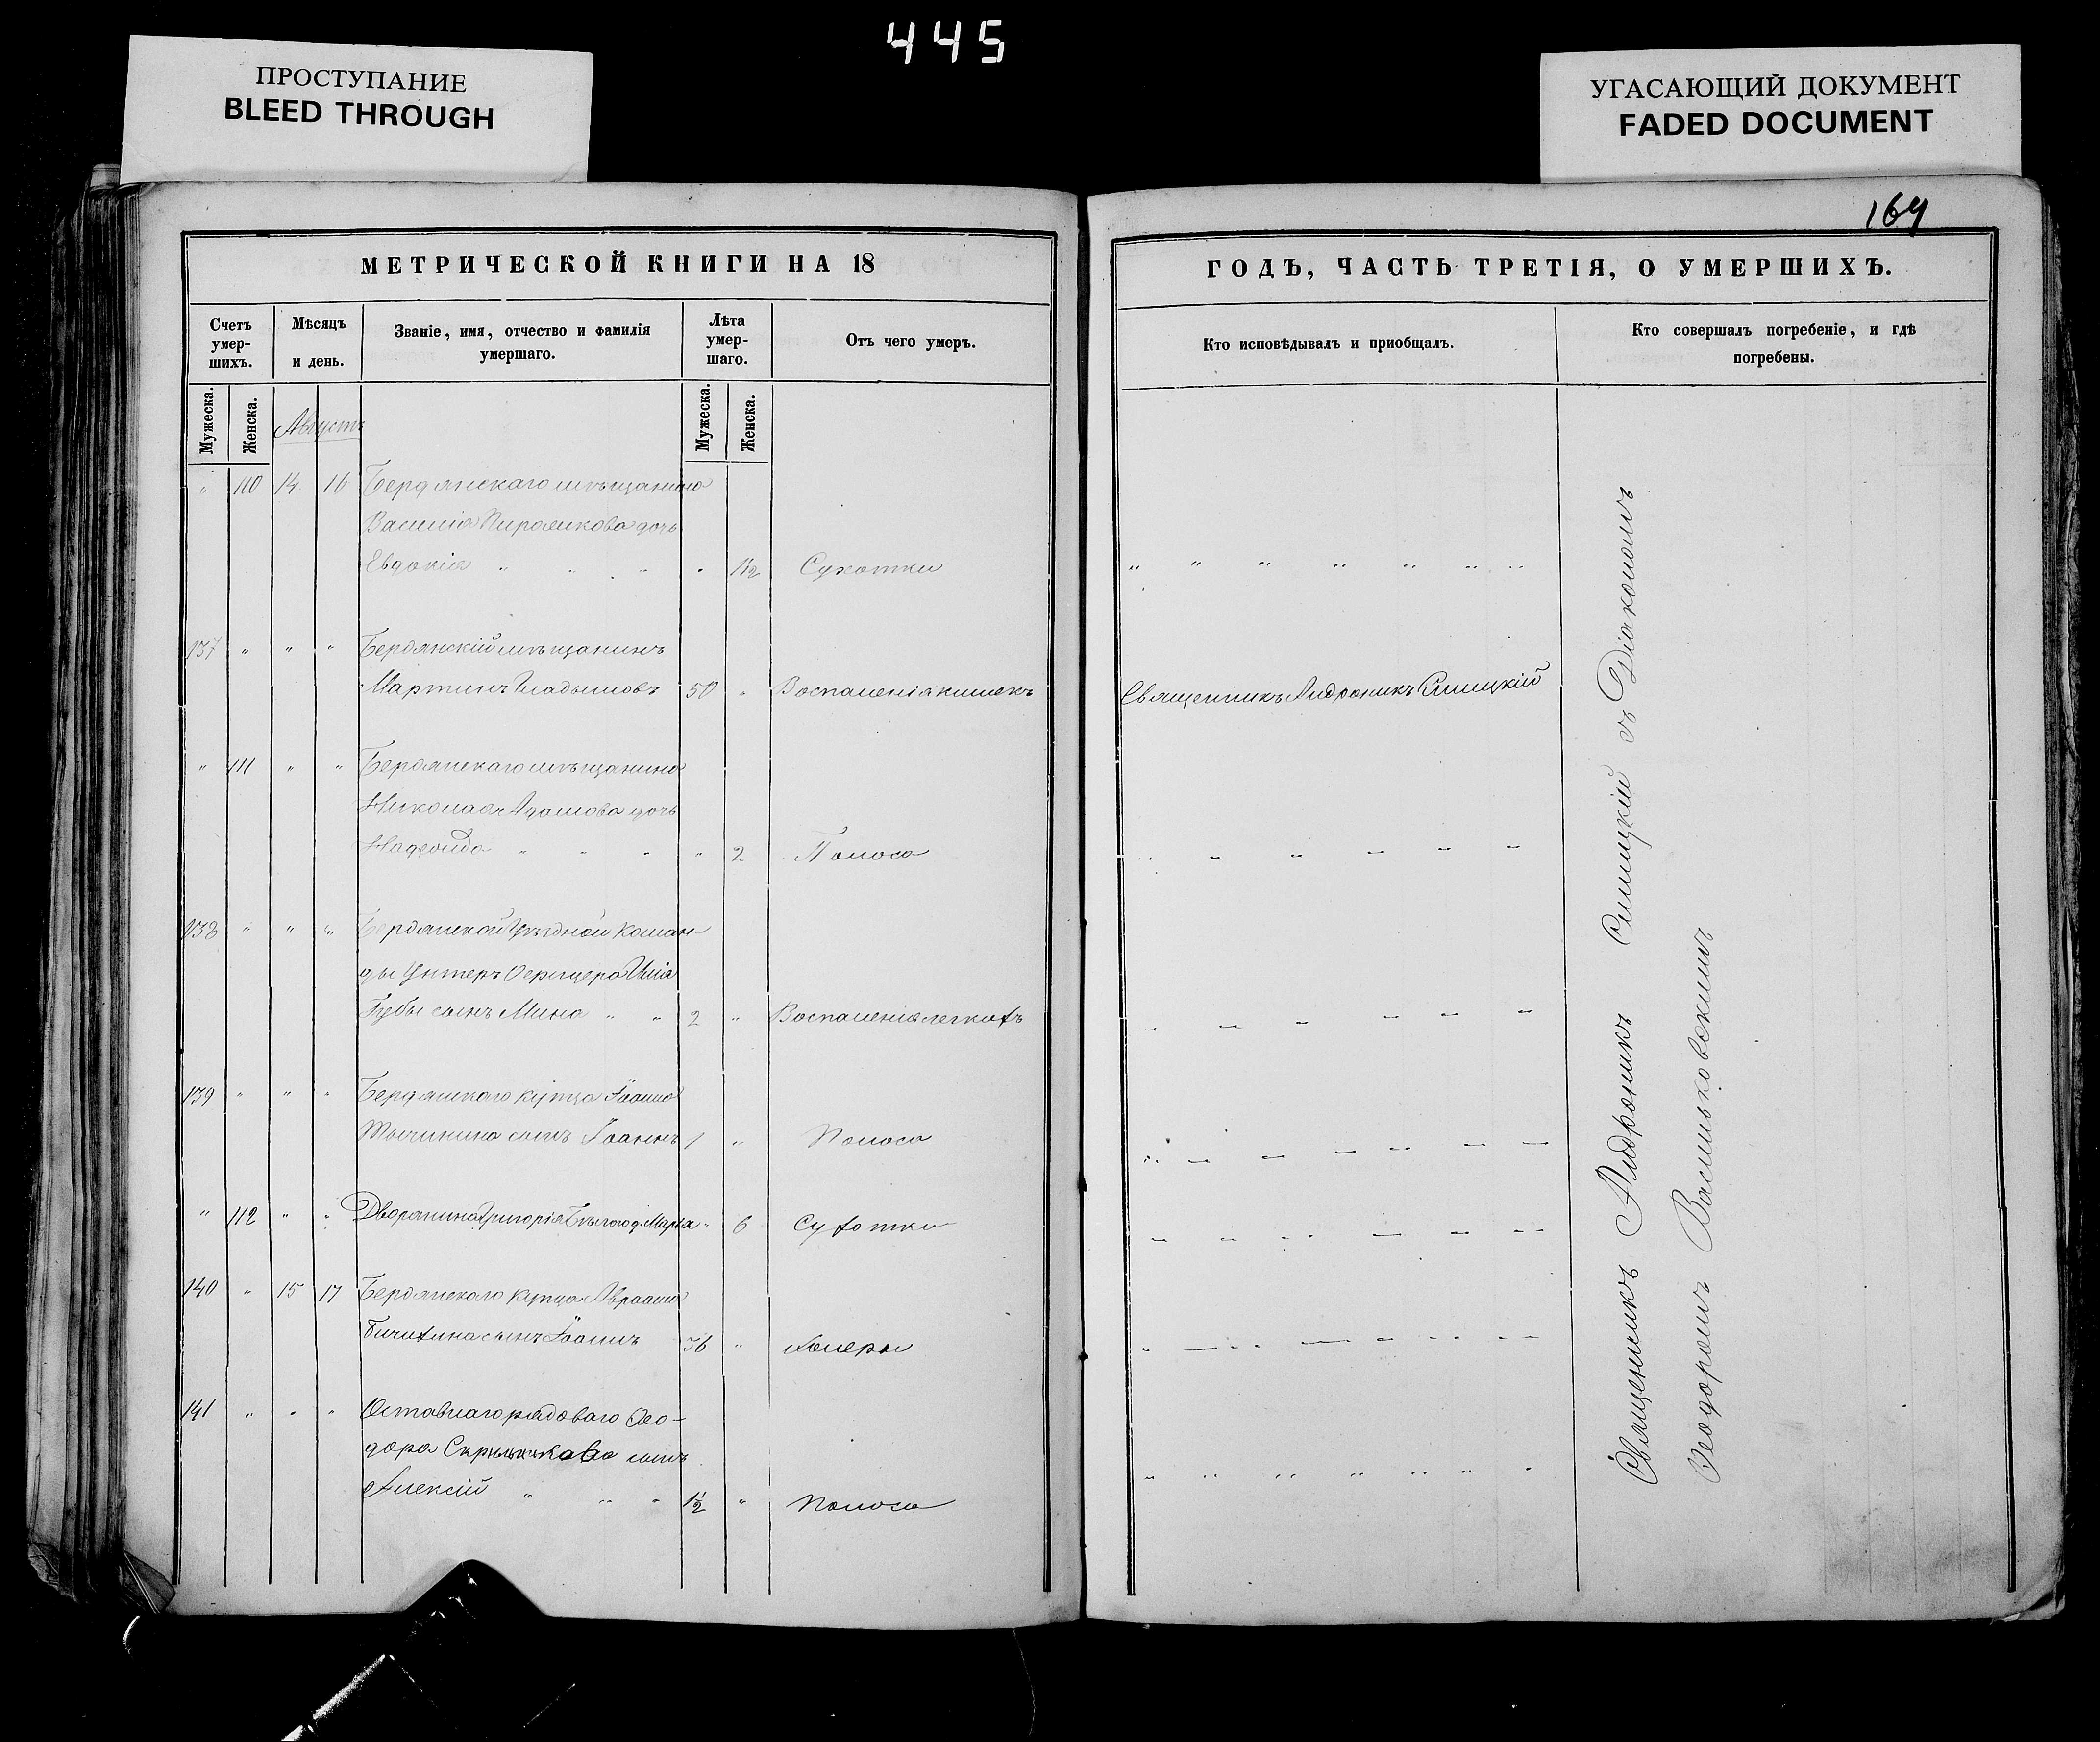 445
ПРОСТУПАНИЕ
BLEED THROUGH
УГАСАЮЩИЙ ДОКУМЕНТ
FADED DOCUMENT
169
МЕТРИЧЕСКОЙ КНИГИ НА 18
Счетъ умер-шихъ.
Мѣсяцъ и день.
Званіе, имя, отчество и фамилія умершаго.
Лѣта умер-шаго.
Отъ чего умеръ.
Мужеска.
Женска.
Августъ
Мужеска.
Женска.
" 110 14 16 Бердянскаго мѣщанина
Василія дочь
Евдокія " " " " " 1½ Сухотки
137 " " " Бердянскій мѣщанинъ
Мартинъ 50 " Воспаленія кишекъ
" 111 " " Бердянскаго мѣщанина
Николая Адамова дочь
Надежда " " " " 2 Поноса
138 " " " Бердянской Уѣздной Коман
ды Унтеръ Офицера Иліи
Губы сынъ Мина " " 2 " Воспаленія легкихъ
139 " " " Бердянскаго купца Іоанна
сынъ Іоаннъ 1 " Поноса
" 112 " " Дворянина Григорія Бѣлаго д. Марія " 6 Сухотки
140 " 15 17 Бердянскаго купца Авраама
сынъ Іоаннъ 36 " Холеры
141 " " " Оставнаго рядоваго Ѳео-
дора сынъ
Алексій " " " 1½ " Поноса
ГОДЪ, ЧАСТЬ ТРЕТІЯ, О УМЕРШИХЪ.
Кто исповѣдывалъ и приобщалъ.
Кто совершалъ погребеніе, и гдѣ погребены.
Священникъ Андроникъ Слицкій
Священникъ Андроникъ Слицкій съ Діакономъ
Ѳеодоромъ Васильковскимъ